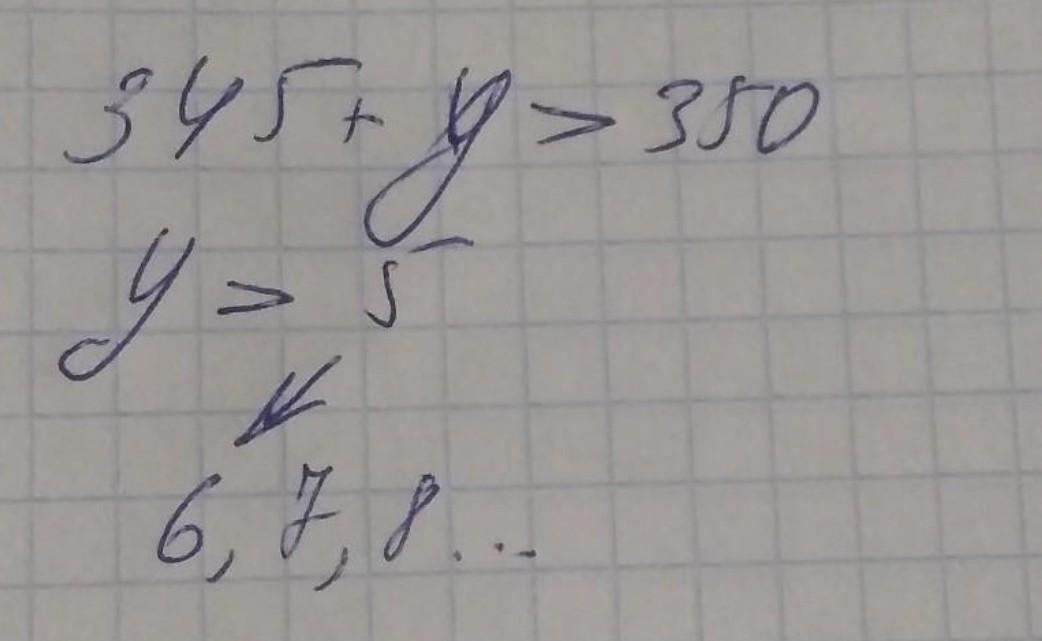 345 + y > 350
y > 5
6, 7, 8 ...